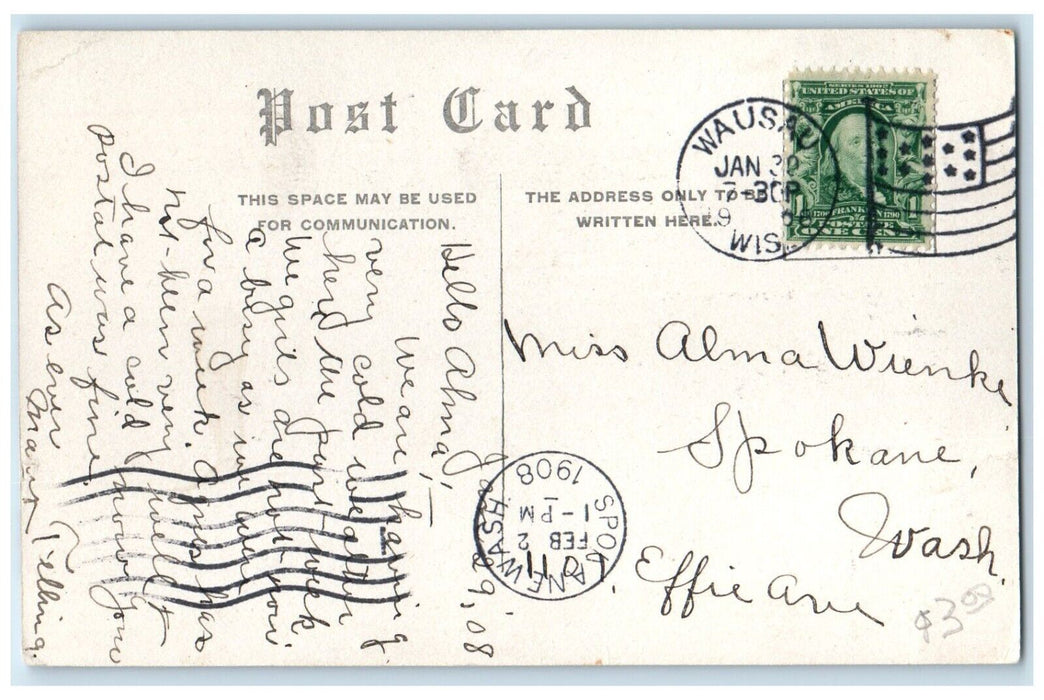 Post Card
THIS SPACE MAY BE USED
FOR COMMUNICATION.
THE ADDRESS ONLY TO BE
WRITTEN HERE.
SERIES 1902
UNITED STATES OF
AMERICA
1706 FRANKLIN 1790
POSTAGE
1 ONE CENT 1
WAUSAU
JAN 30
7-30P
WIS.
Miss Alma Wienke
Spokane,
Wash.
Effie Ave
SPOKANE WASH.
FEB 2
1-PM
1908
Jan 29, '08
Hello Alma,
We are having
very cold weather
here the past week.
We girls are not
a busy as we were now
for a week. Agnes has
not been very well &
I have a cold now. Your
postal was fine.
As ever
Mary Tilling
$3.00